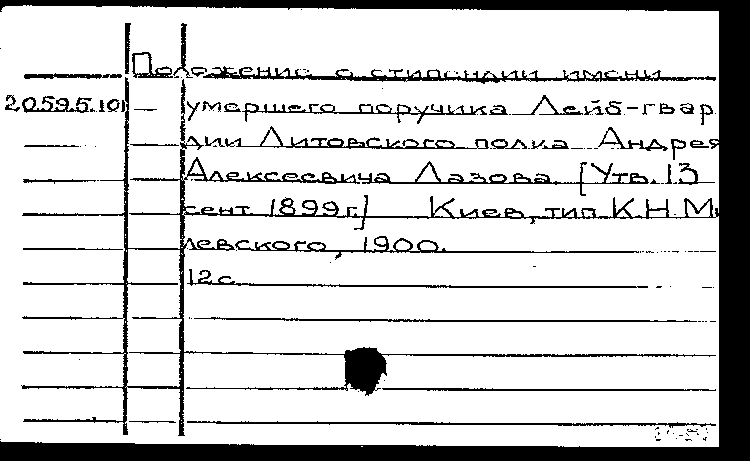 Положение о стипендии имени
20.59.5.10 — умершего поручика Лейб-гвар
дии Литовского полка Андрея
Алексеевича Лазова. [Утв. 13
сент 1899 г.] Киев, тип. К.Н. Ми
левского, 1900.
12 с.